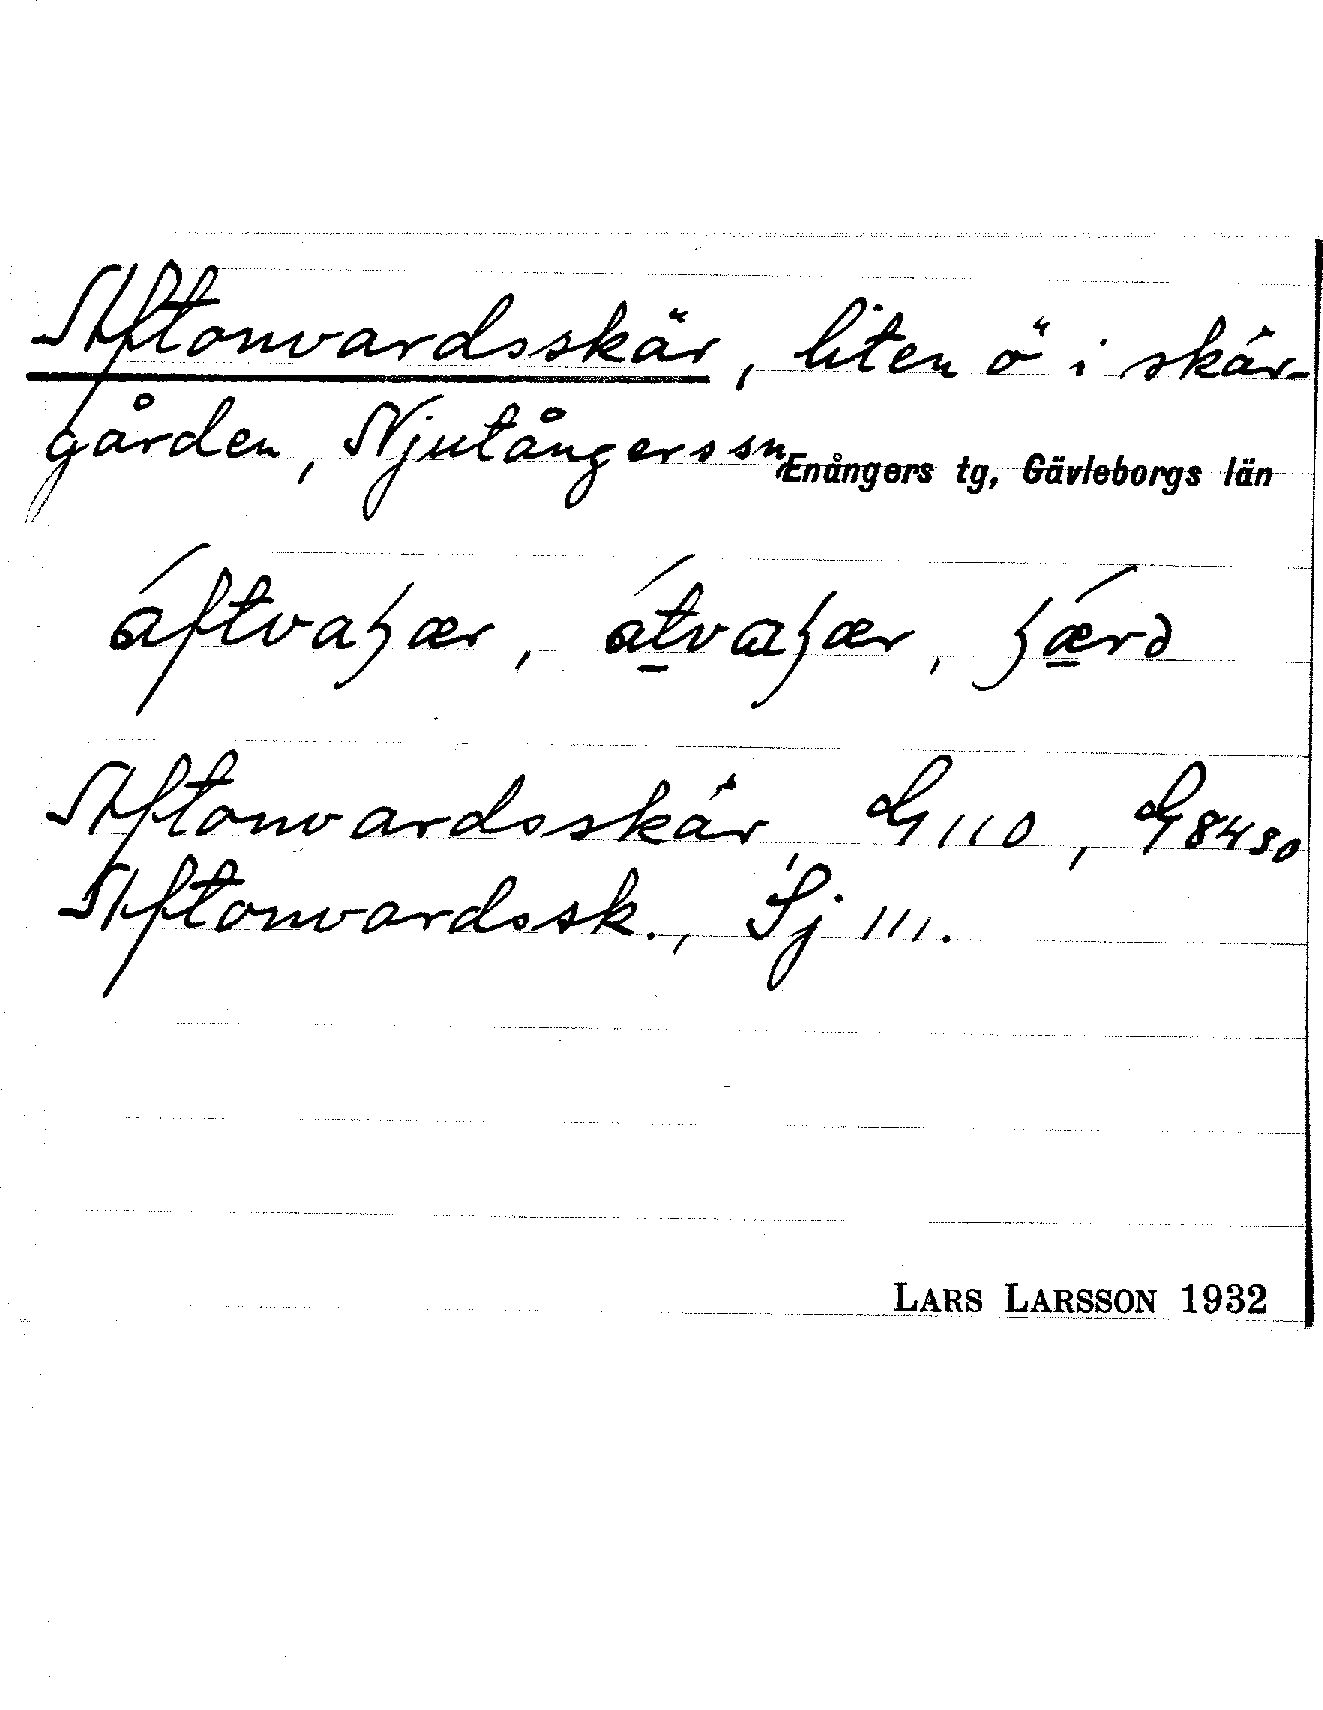 Aftonvardsskär, liten ö i skär-
gården, Njutångers sn, Enångers tg, Gävleborgs län
áftvaʃær, átvaʃær, ʃǽrə
Aftonvardsskär, G 110, G 84 so
Aftonvardssk., Sj 111.
LARS LARSSON 1932